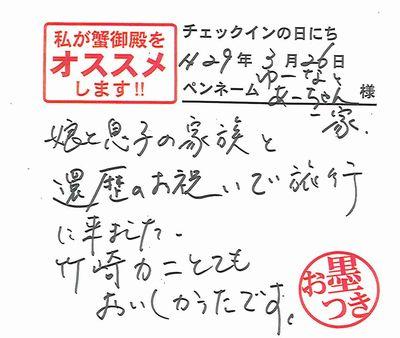 私が蟹御殿を
オススメ
します!!
チェックインの日にち
H29年 3月26日
ペンネーム ゆーなと 様
あーちゃん
一家.
娘と息子の家族と
還歴のお祝いで旅行
に来ました.
竹崎カニとても
おいしかったです。
お墨つき